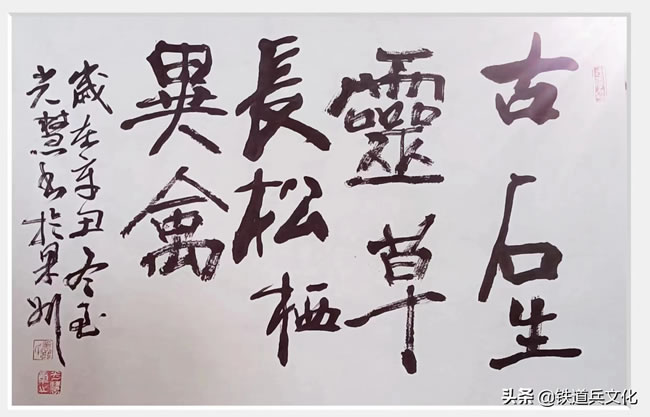 古石生
靈草
長松栖
異禽
歲在辛丑冬至
光慧書於果州
头条 @铁道兵文化